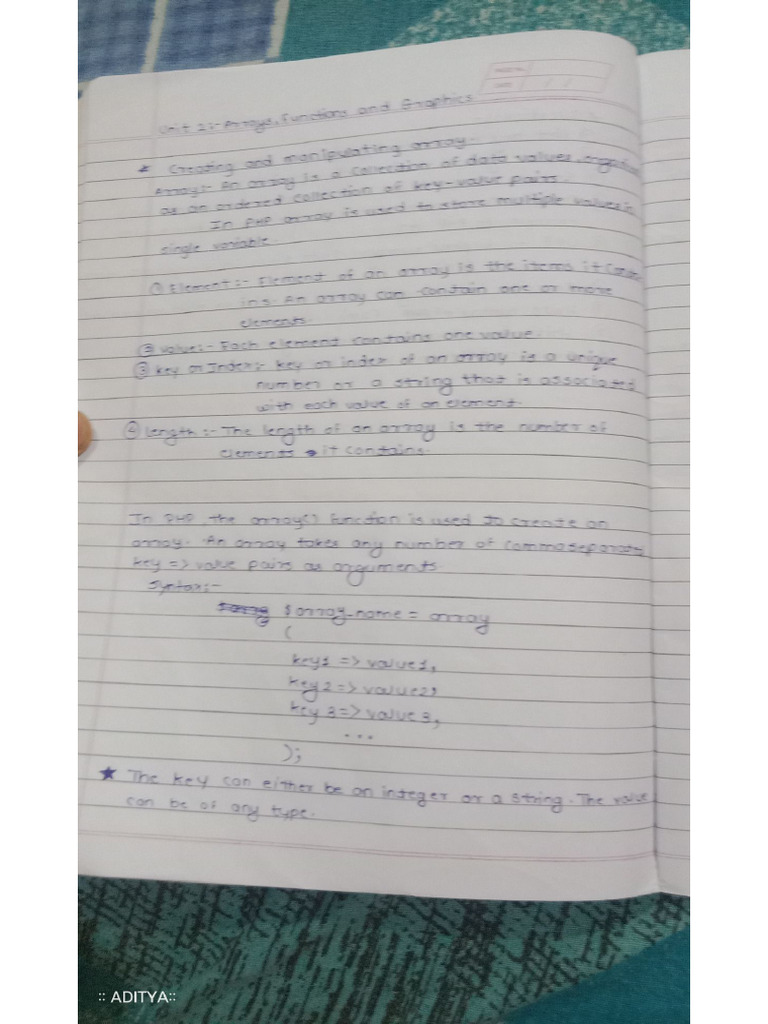 PAGE No.
DATE / /
Unit 2:- Arrays, Functions and Graphics
* Creating and manipulating array.
Array:- An array is a collection of data values, organized
as an ordered collection of key-value pairs.
In PHP array is used to store multiple values in
single variable.
① Element:- Element of an array is the items it conta
ins. An array can contain one or more
elements.
② value:- Each element contains one value.
③ key or Index:- key or index of an array is a unique
number or a string that is associated
with each value of an element.
④ length:- The length of an array is the number of
elements it contains.
In PHP, the array() function is used to create an
array. An array takes any number of comma separated
key => value pairs as arguments.
Syntax:-
$array_name = array
(
key1 => value1,
key2 => value2,
key 3 => value 3,
...
);
★ The key can either be an integer or a string. The value
can be of any type.
:: ADITYA::